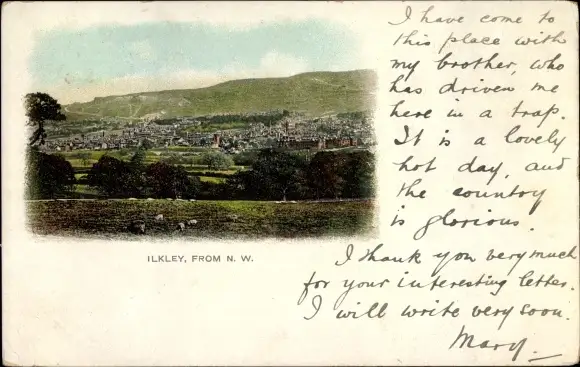 I have come to
this place with
my brother, who
has driven me
here in a trap.
It is a lovely
hot day, and
the country
is glorious.
I thank you very much
for your interesting letter.
I will write very soon.
Mary.
ILKLEY, FROM N. W.